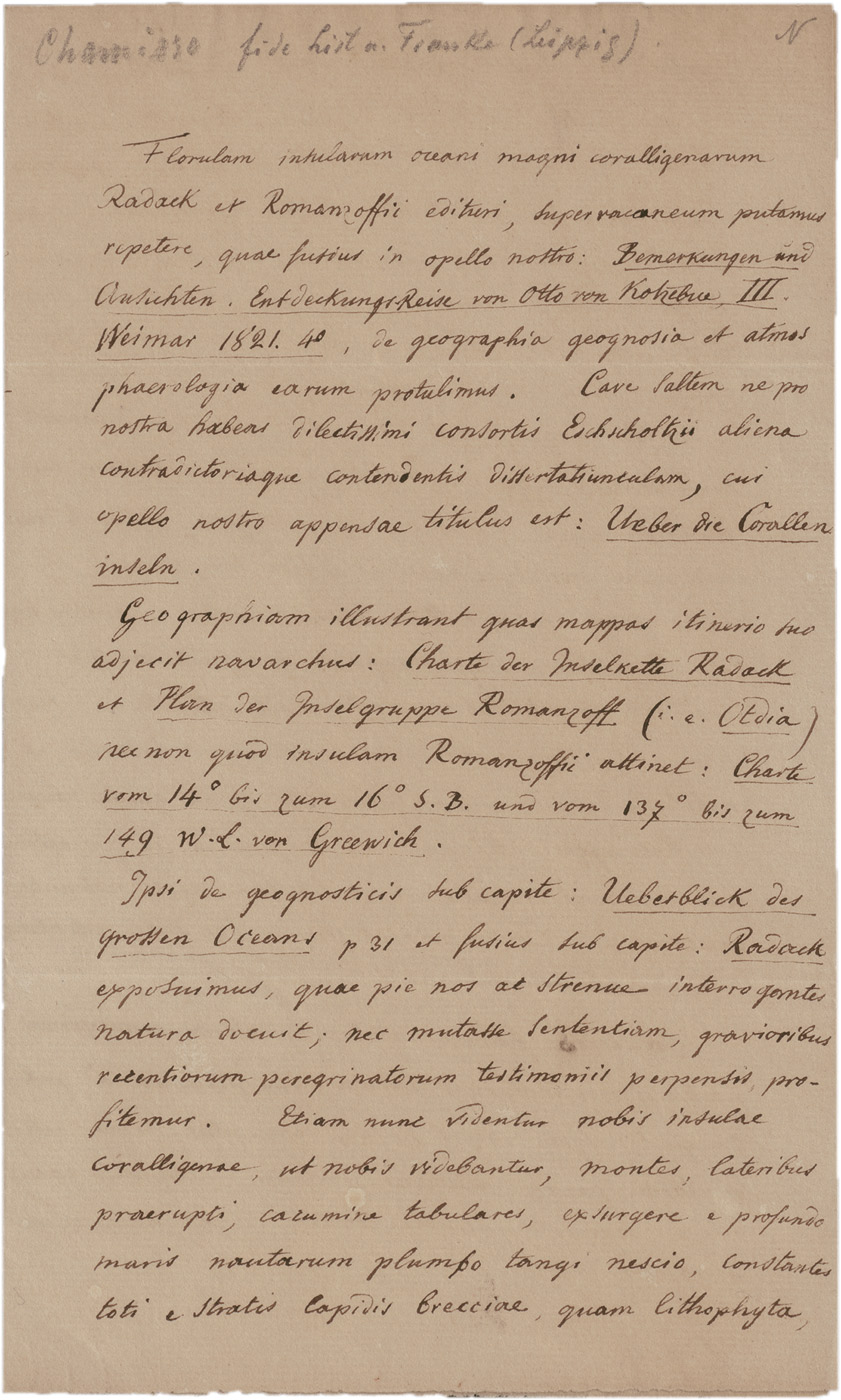 Chamisso fide hist. n. Franke (Leipzig). N
Florulam insularum oceani magni coralligenarum
Radack et Romanzoffii edituri, supervacaneum putamus
repetere, quae fusius in opello nostro: Bemerkungen und
Ansichten. Entdeckungs Reise von Otto von Kotzebue, III.
Weimar 1821. 4o, de geographia geognosia et atmos
phaerologia earum protulimus. Cave saltem ne pro
nostra habeas dilectissimi consortis Eschscholtzii aliena
contradictoriaque contendentis dissertatiunculam, cui
opello nostro appensae titulus est: Ueber die Corallen
inseln.
Geographiam illustrant quas mappas itinerio suo
adjecit navarchus: Charte der Inselkette Radack
et Plan der Inselgruppe Romanzoff (i. e. Otdia)
nec non quod insulam Romanzoffii attinet: Charte
vom 14° bis zum 16° S. B. und vom 137° bis zum
149 W. L. von Greewich.
Ipsi de geognosticis sub capite: Ueberblick des
grossen Oceans p 31 et fusius sub capite: Radack
exposuimus, quae pie nos at strenue interrogantes
natura docuit; nec mutasse sententiam, gravioribus
recentiorum peregrinatorum testimoniis perpensis, pro-
fitemur. Etiam nunc videntur nobis insulae
coralligenae, ut nobis videbantur, montes, lateribus
praerupti, cacumine tabulares, exsurgere e profundo
maris nautarum plumbo tangi nescio, constantes
toti e stratis lapidis brecciae, quam lithophyta,